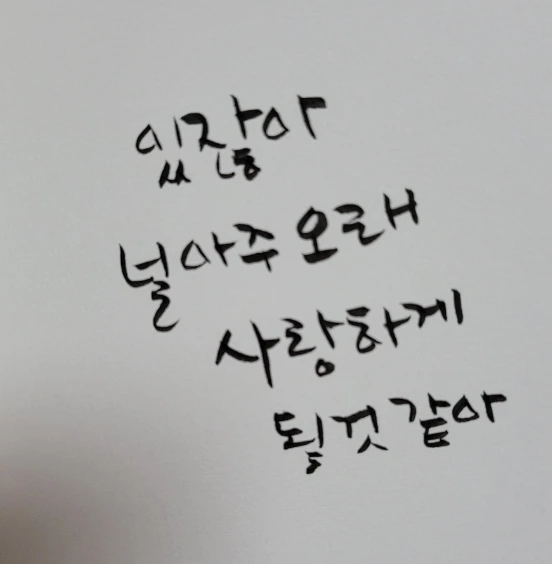 있잖아
널 아주 오래
사랑하게
될것 같아